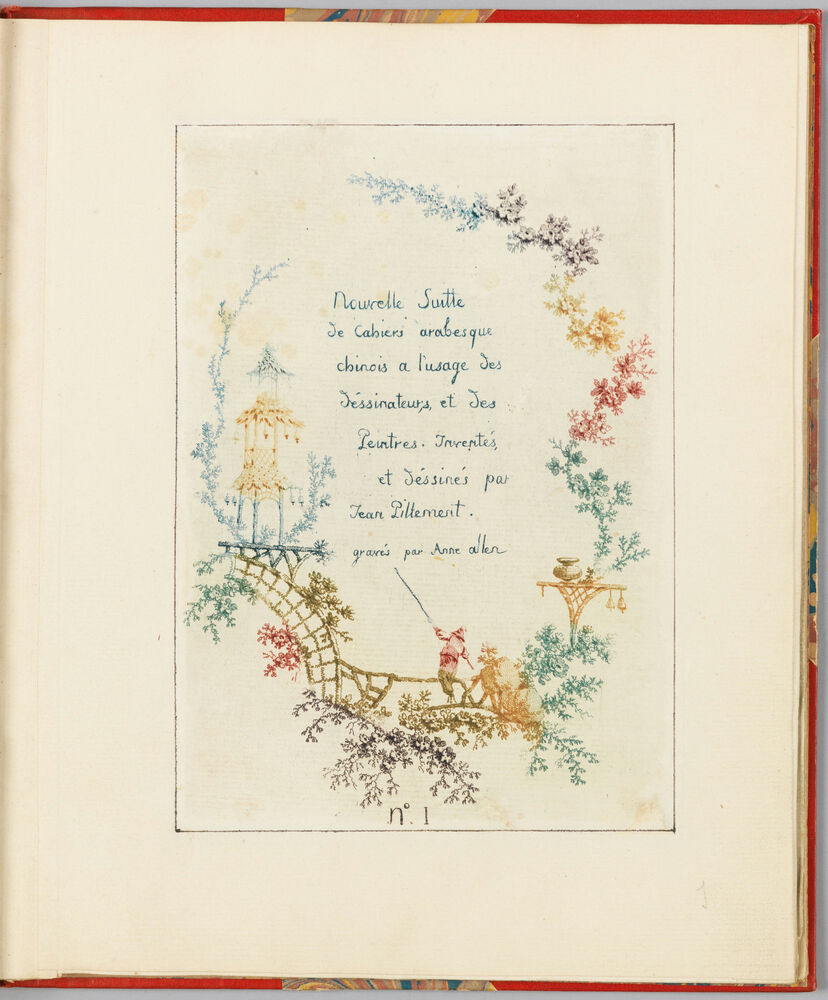 Nouvelle Suitte
de Cahiers arabesque
chinois a l'usage des
déssinateurs, et des
Peintres. Inventés,
et déssinés par
Jean Pillement.
gravés par Anne allen
n.° 1